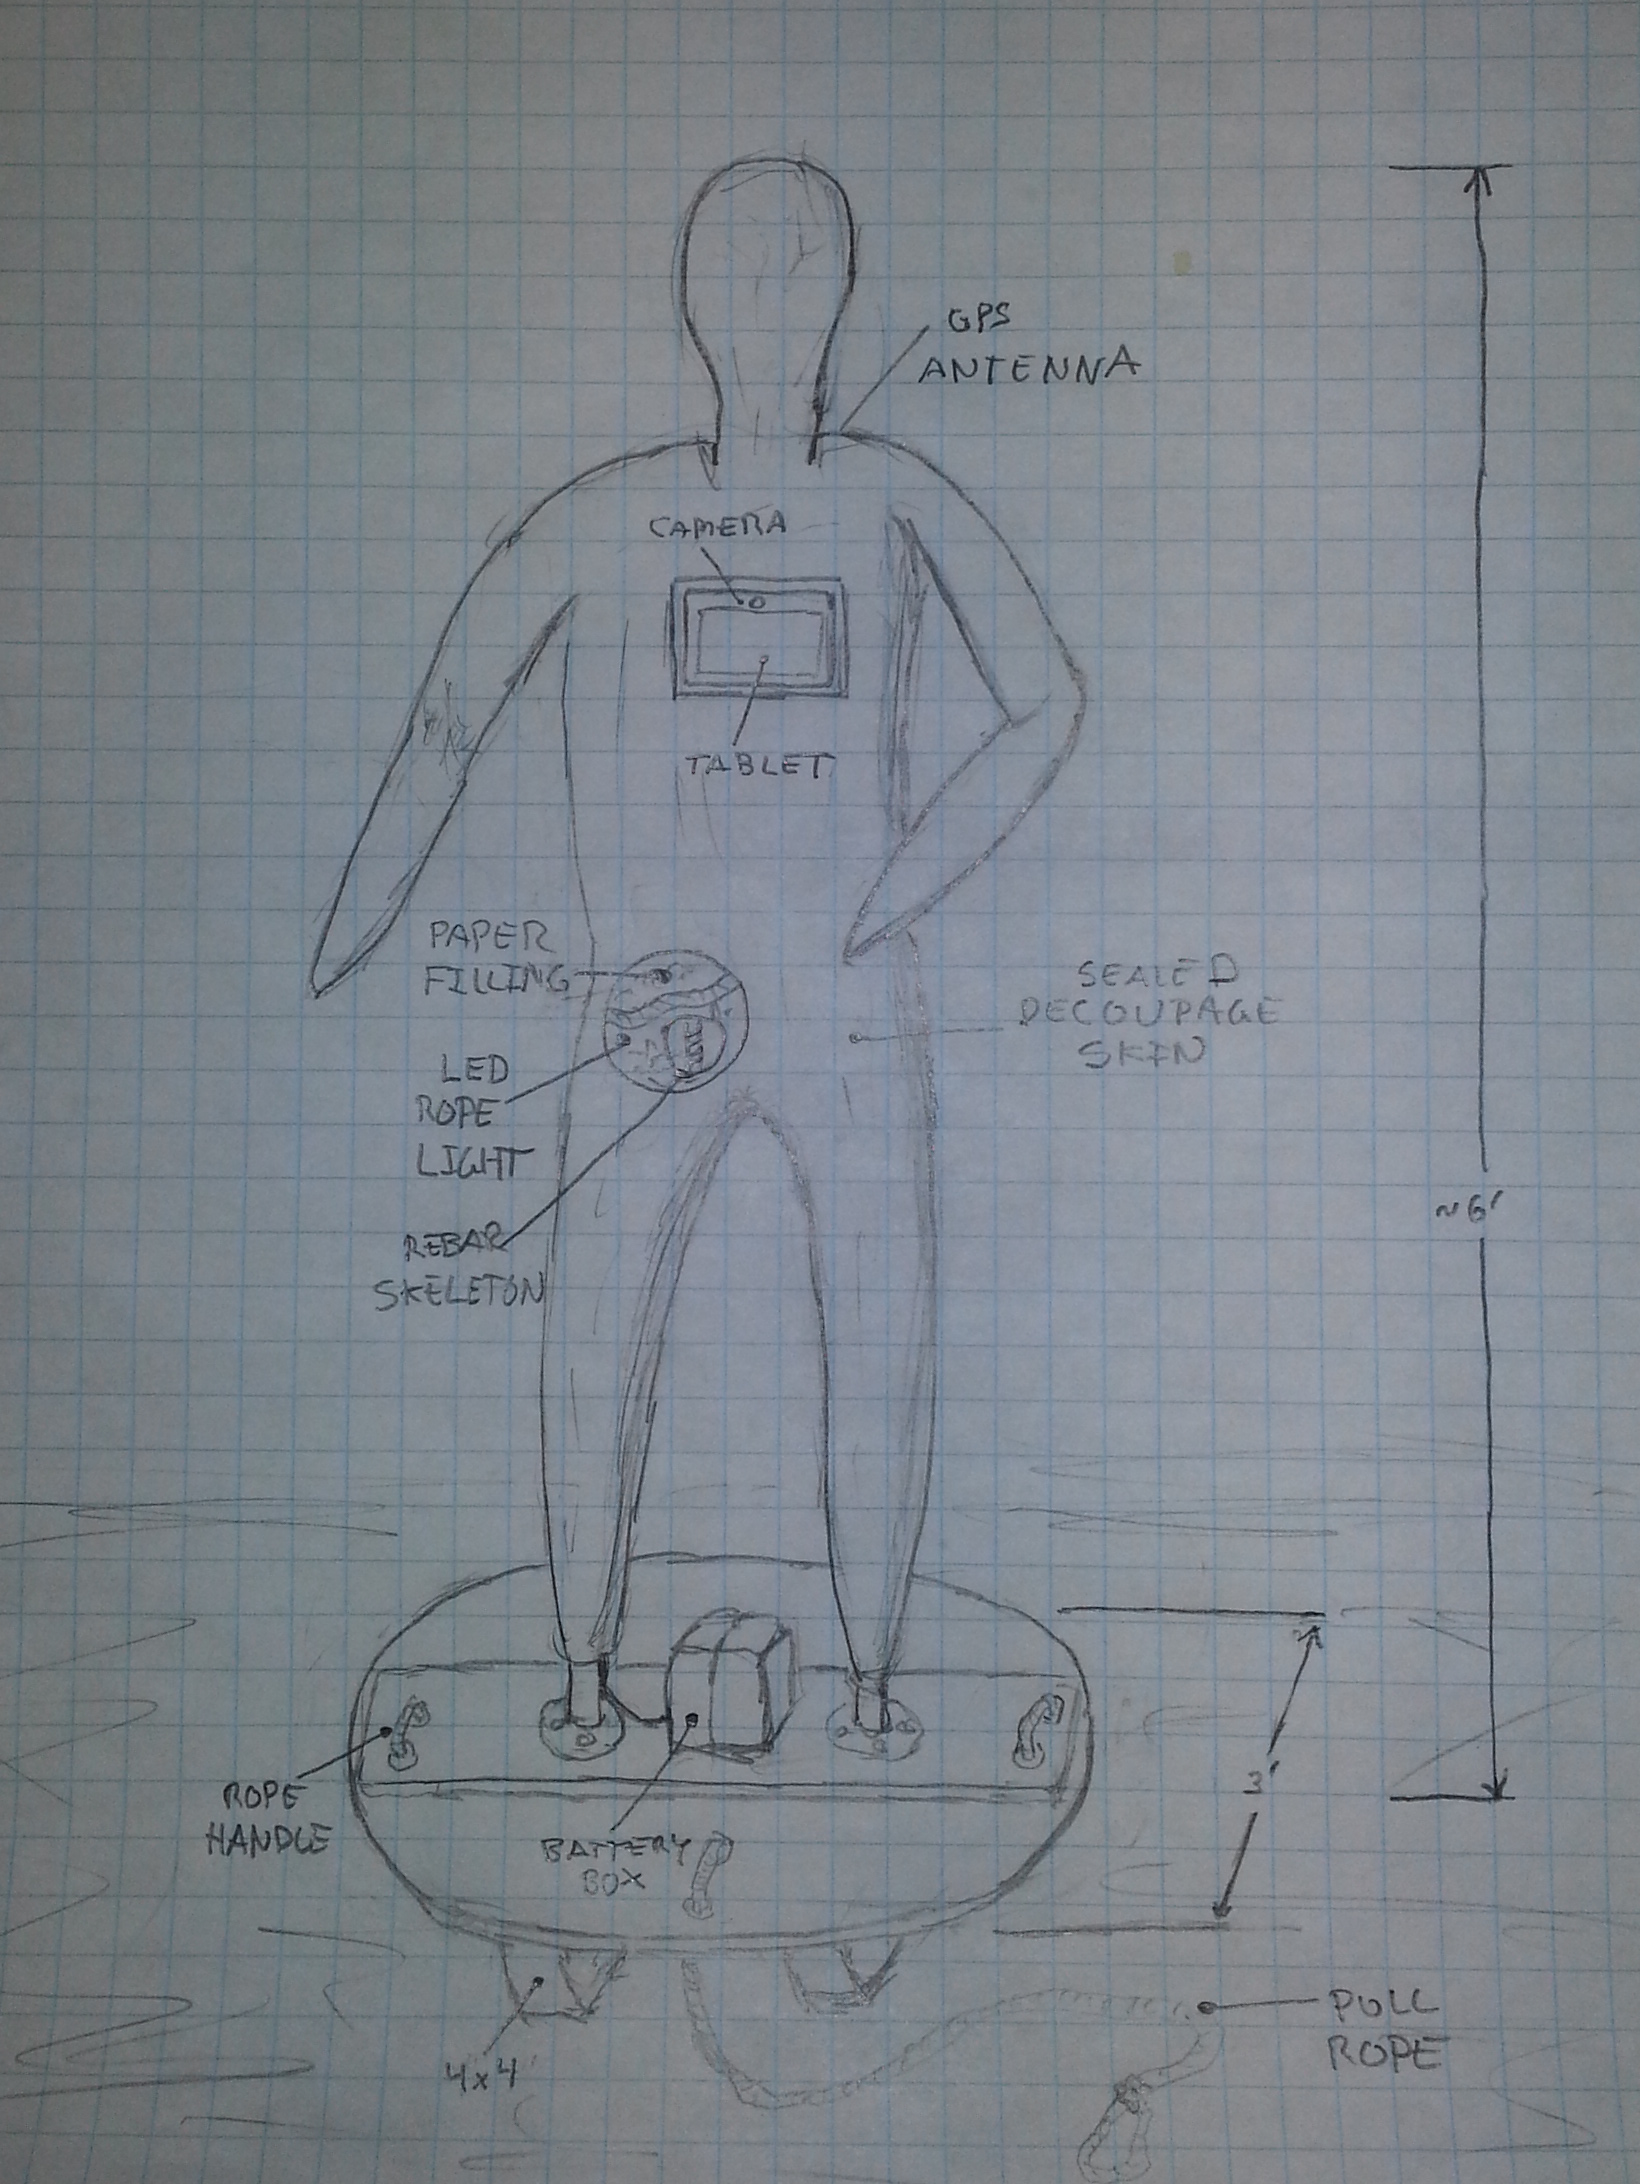 GPS
ANTENNA
CAMERA
TABLET
PAPER
FILLING
SEALED
DECOUPAGE
SKIN
LED
ROPE
LIGHT
~6'
REBAR
SKELETON
3'
ROPE
HANDLE
BATTERY
BOX
PULL
ROPE
4x4